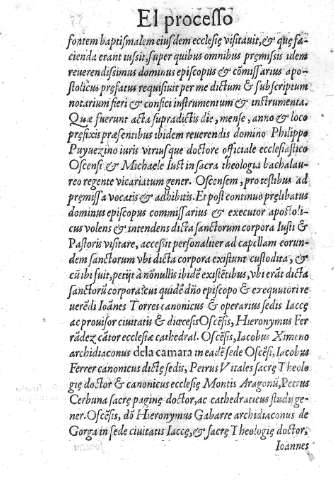 El processo
fontem baptismalem eiusdem ecclesię visitauit, & quę fa-
cienda erant iussit. super quibus omnibus pręmissis idem
reuerendissimus dominus episcopus & cõmissarius apo-
stolicus pręfatus requisiuit per me dictum & subscriptum
notarium fieri & confici instrumentum & instrumenta.
Quæ fuerunt acta supradictis die, mense, anno & loco
pręfixis præsentibus ibidem reuerendis domino Philippo
Puyuezino iuris vtriusque doctore officiale ecclesiastico
Oscensi & Michaele Iust in sacra theologia bachalau-
reo regente vicariatum gener. Oscensem, pro testibus ad
pręmissa vocatis & adhibitis. Et post continuo prelibatus
dominus episcopus commissarius & executor apostoli-
cus volens & intendens dicta sanctorum corpora Iusti &
Pastoris visitare, accessit personaliter ad capellam eorun-
dem sanctorum vbi dicta corpora existunt custodita, &
cũ ibi fuit, petijt à nõnullis ibidẽ existẽtibus, vbi erãt dicta
sanctorũ corpora: cui quidẽ dño episcopo & exequutori re
uerẽdi Ioãnes Torres canonicus & operarius sedis Iaccę,
ac prouisor ciuitatis & diœcesis Oscẽsis, Hieronymus Fer
rãdez cãtor ecclesiæ cathedral. Oscẽsis, Iacobus Ximeno
archidiaconus dela camara in eadẽ sede Oscẽsi, Iacobus
Ferrer canonicus dictę sedis, Petrus Vitales sacrę Theolo-
gię doctor & canonicus ecclesię Montis Aragonũ, Petrus
Cerbuna sacrę paginę doctor, ac cathedraticus studij ge-
ner. Oscẽsis, dñ Hieronymus Gabarre archidiaconus de
Gorga in sede ciuitatis Iaccę, & sacrę Theologię doctor,
Ioannes